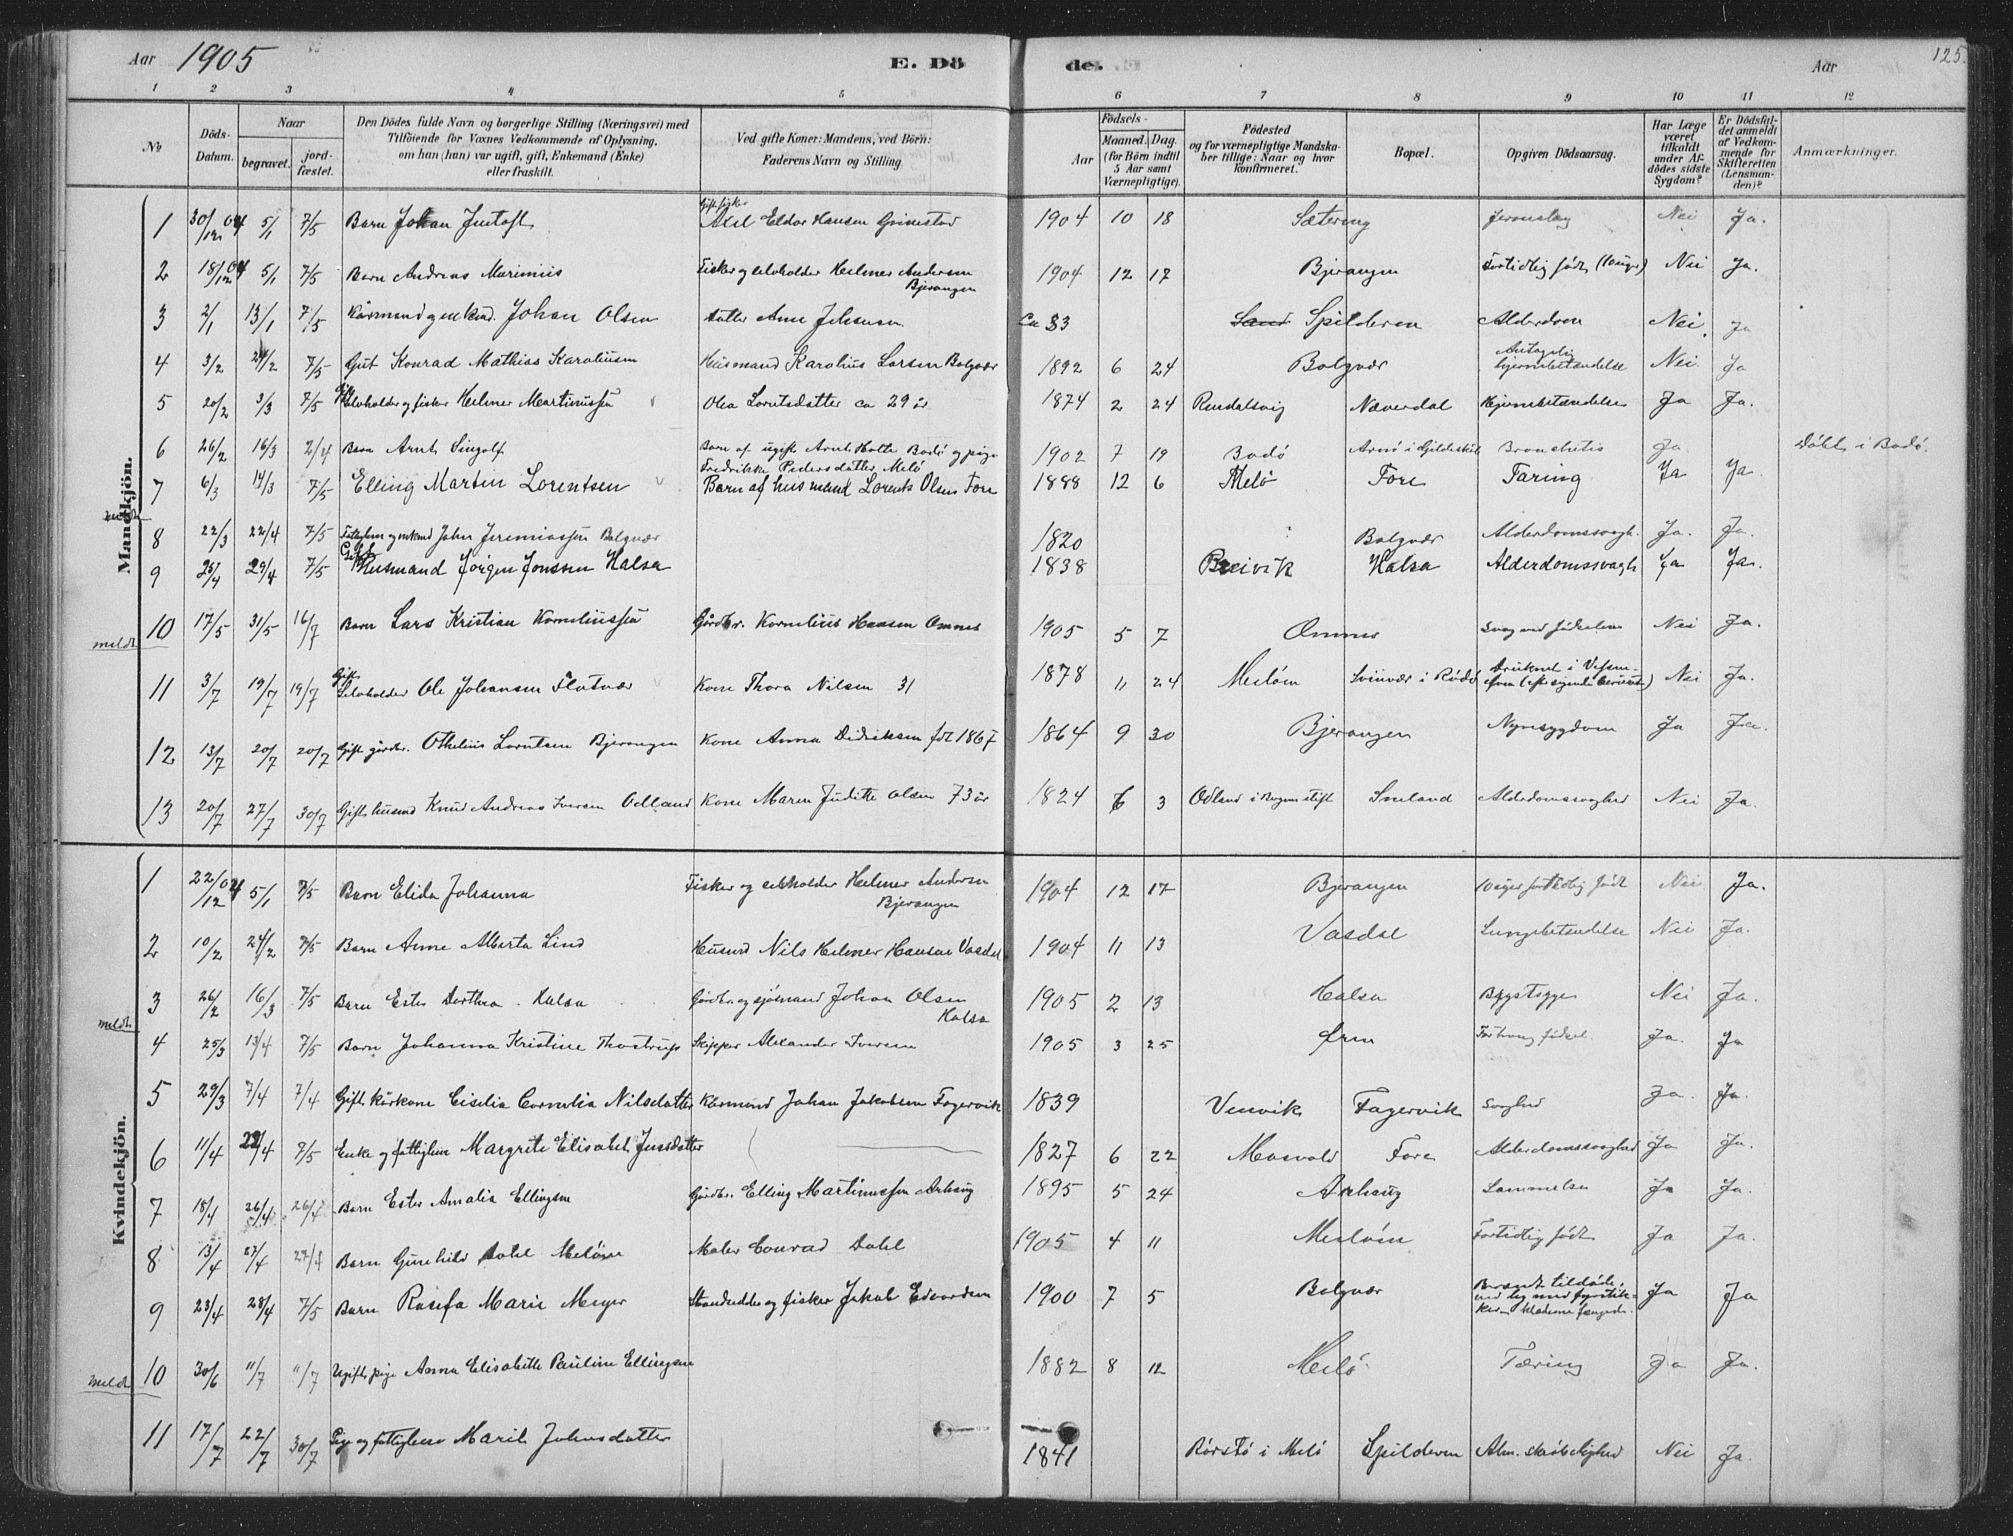 Aar 1905 E. Döde. Aar 125.
1 2 3 4 5 6 7 8 9 10 11 12
No. Döds-Datum. Naar begravet. jordfæstet. Den Dödes fulde Navn og borgerlige Stilling (Næringsvei) med Tilföiende for Voxnes Vedkommende af Oplysning, om han (hun) var ugift, gift, Enkemand (Enke) eller fraskilt. Ved gifte Koner: Mandens, ved Börn: Faderens Navn og Stilling. Födsels- Aar Maaned. Dag. (for Börn indtil 5 Aar samt Værnepligtige). Födested og for værnepligtige Mandskaber tillige: Naar og hvor konfirmeret. Bopæl. Opgiven Dödsaarsag. Har Læge været tilkaldt under Afdödes sidste Sygdom? Er Dödsfaldet anmeldt af Vedkommende for Skifteretten (Lensmanden)? Anmærkninger.
Mandkjön.
1 30/12 04 5/1 7/5 Barn Johan Justoft Gift fisker Eldor Hansen Grimstad 1904 10 18 Sætering Nei Ja.
2 18/12 04 5/1 7/5 Barn Andreas Marinius Fisker og selvholder Helmer Andersen Bjerangen 1904 12 17 Bjerangen Fortidlig født Nei Ja.
3 2/1 13/1 7/5 Kårmand og enkmd. Johan Olsen Datter Anne Johansen Ca 83 Spilderen Alderdom Nei. Ja
4 3/2 24/2 7/5 Gut Konrad Mathias Karoliusen Husmand Karolius Larsen Bolgvær 1892 6 24 Bolgvær Antagelig hjernebetændelse Nei Ja
5 20/2 3/3 7/5 Gift Selvholder og fisker Helmer Martinussen Olea Lorntsdatter ca 29 år 1874 2 24 Rendalsvig Næverdal Hjernebetændelse Ja Ja.
6 26/2 16/3 2/4 Barn Arnt Singolf Barn af ugift Arnt Holte Bodø og pige Fredrikke Pedersdatter Melø 1902 7 19 Bodø Arnø i Gjildeskål Bronchitis Ja Døbt i Bodø.
7 6/3 14/3 7/5 Elling Martin Lorentsen Barn af husmand Lorents Olsen Fore 1888 12 6 Melø Fore Tæring Ja Ja
meldt
8 22/3 22/4 7/5 Fattiglem og enkmd John Jeremiassen Bolgvær 1820 Bolgvær Alderdomssvagh. Ja. Ja.
9 25/4 29/4 7/5 Gift Husmand Jørgen Jonssen Halsa 1838 Breivik Halsa Alderdomssvagh Ja Ja.
meldt 10 17/5 31/5 16/7 Barn Lars Kristian Korneliussen Gårdbr. Kornelius Hansen Ømnes 1905 5 7 Ømnes Svag ved fødselen Nei Ja.
11 3/7 19/7 19/7 Gift Selvholder Ole Johansen Flatvær Kone Thora Nilsen 31 1878 11 24 Meløen Svinvær i Rødø Druknet i Vefsn- Nei Ja.
12 13/7 20/7 20/7 Gift gårdbr. Othelius Lorntsen Bjerangen Kone Anna Didriksen født 1867 1864 9 30 Bjerangen Nyresygdom Ja Ja.
13 20/7 27/7 30/7 Gift husmd Knud Andreas Iversen Odland Kone Maren Juditte Olsen 73 år 1824 6 3 Odland i Bergens stift Smeland Alderdomssvaghed Nei Ja.
Kvindekjön.
1 22/12 04 5/1 7/5 Barn Elida Johanna Fisker og selvholder Helmer Andersen Bjerangen 1904 12 17 Bjerangen 10 uger fortidlig født Nei Ja.
2 10/2 24/2 7/5 Barn Anne Alberta Lind Husmd Nils Helmer Hansen Vasdal 1904 11 13 Vasdal Lungebetændelse Nei Ja.
3 26/2 16/3 7/5 Barn Ester Dorthea Halsa Gårdbr. og sjømand Johan Olsen Halsa 1905 2 13 Halsa Brystsyge Nei Ja.
meldt
4 25/3 13/4 7/5 Barn Johanna Kristine Thostrup Skipper Alexander Iversen 1905 3 25 Ørnes fødsel Ja. Ja
5 29/3 7/4 7/4 Gift kårkone Cicilia Cornelia Nilsdatter Kårmand Johan Jakobsen Fagervik 1839 Venvik Fagervik Svaghed Ja. Ja.
6 11/4 22/4 7/5 Enke og fattiglem Margrete Elisabet Jensdatter 1827 6 22 Mosvold Fore Alderdomssvaghed Ja Ja.
7 18/4 26/4 26/4 Barn Ester Amalia Ellingsen Gårdbr. Elling Martinussen Arhaug 1895 5 24 Arhaug Lammelse Ja Ja.
8 13/4 27/4 27/4 Barn Gunhild Dahl Meløen Maler Conrad Dahl 1905 4 11 Meløen Fortidlig født Ja Ja.
9 23/4 28/4 7/5 Barn Rosefa Marie Meyer Strandsidder og fisker Jakob Edvardsen 1900 7 5 Bolgvær Brændt tildøde, ved leg med fyrstikker. Klæderne fængede. Ja Ja
meldt 10 30/6 11/7 11/7 Ugift pige Anna Elisabette Pauline Ellingsen 1882 8 12 Melø Tæring Ja Ja.
11 17/7 22/7 30/7 Pige og fattiglem Marit Johnsdatter 1841 Rørstø i Melø Spilderen Alm. skrøbelighed Nei Ja.